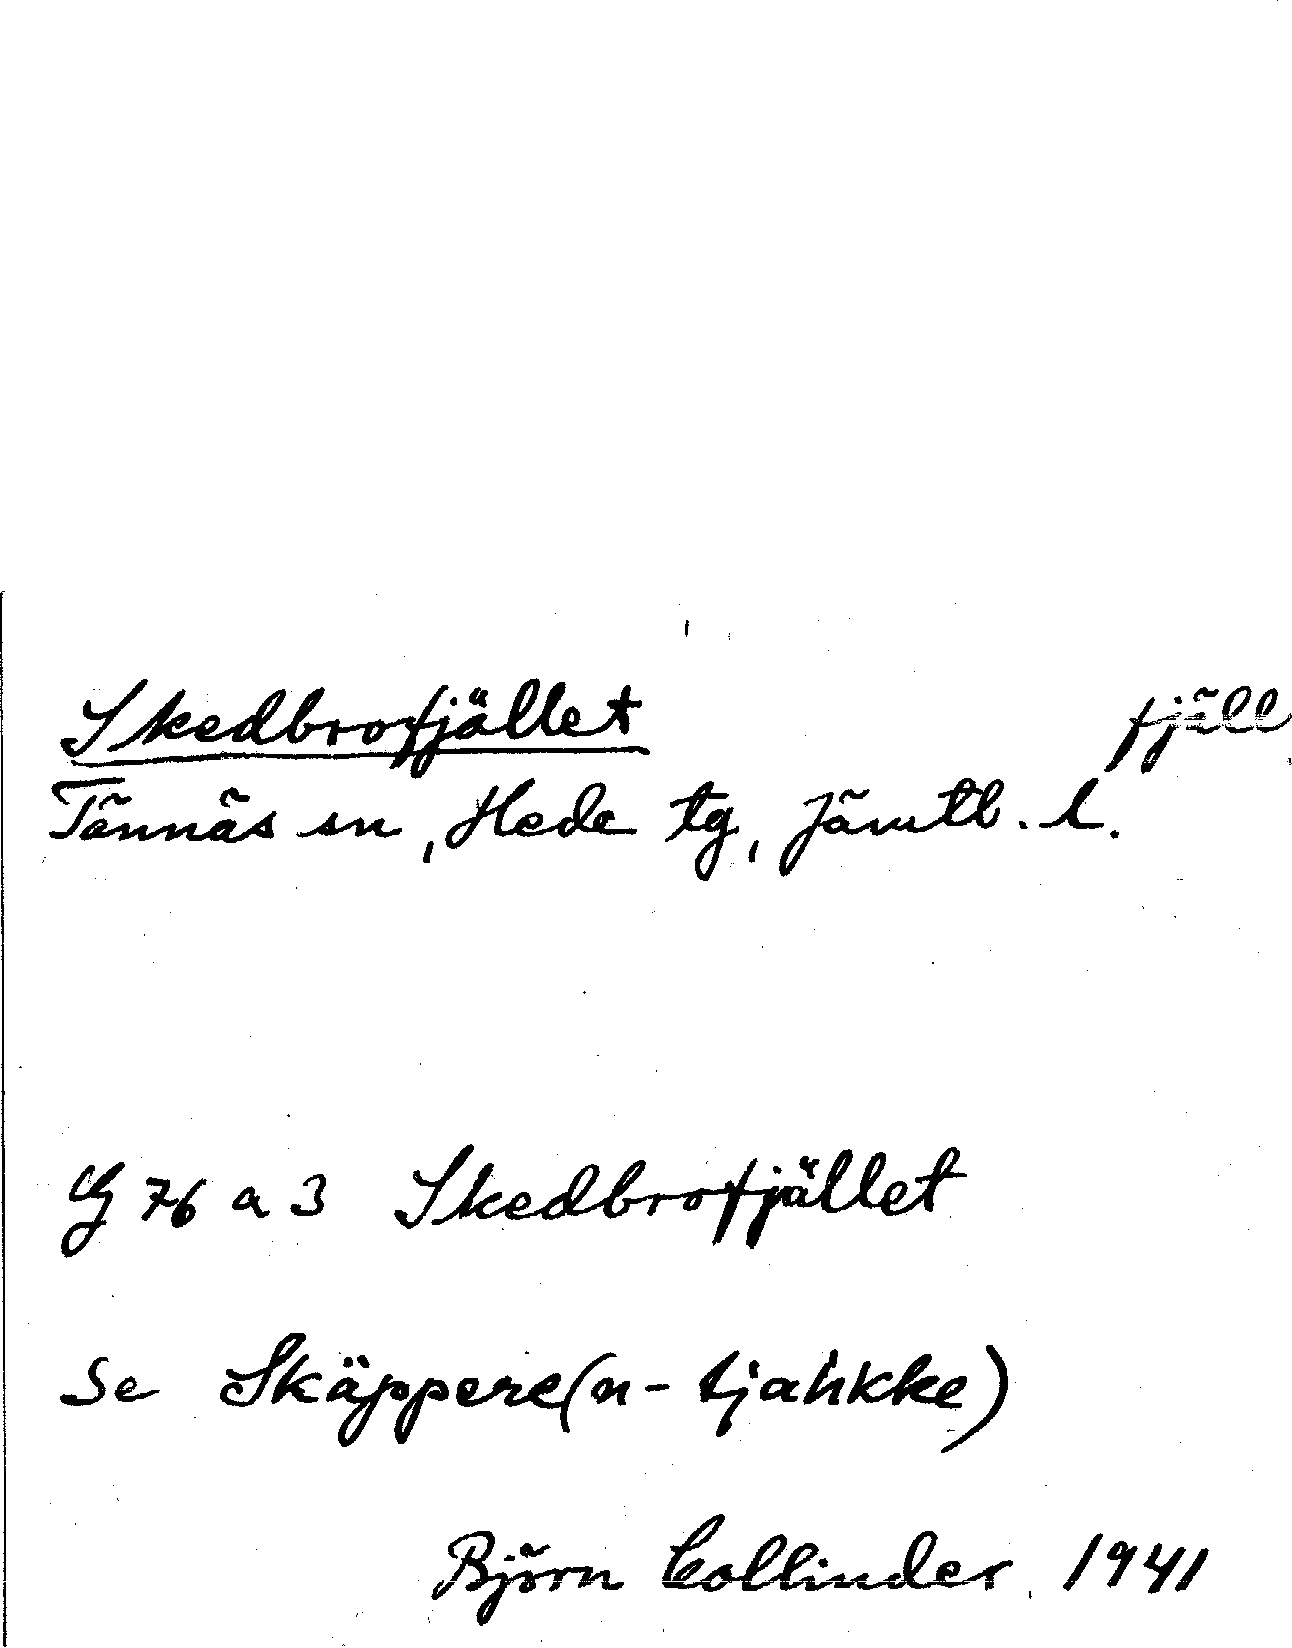 Skedbrofjället fjäll
Tännäs sn, Hede tg, Jämtl. l.
G 76 a 3 Skedbrofjället
Se Skäppere(n-tjahkke)
Björn Collinder 1941